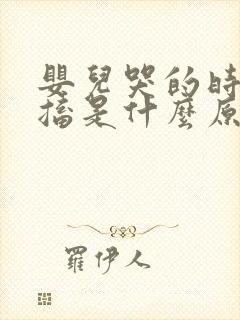 嬰兒哭的時
搐是什麼原
羅伊人